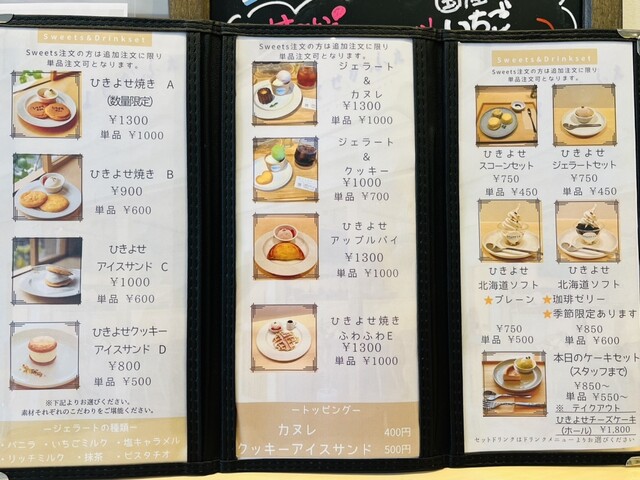 Sweets&Drinkset
Sweets注文の方は追加注文に限り
単品注文可となります。
ひきよせ焼き A
(数量限定)
¥1300
単品 ¥1000
ひきよせ焼き B
¥900
単品 ¥600
ひきよせ
アイスサンド C
¥1000
単品 ¥600
ひきよせクッキー
アイスサンド D
¥800
単品 ¥500
※下記よりお選びください。
素材それぞれのこだわりをご堪能ください。
ージェラートの種類ー
・バニラ ・いちごミルク ・塩キャラメル
・リッチミルク ・抹茶 ・ピスタチオ
Sweets注文の方は追加注文に限り
単品注文可となります。
ジェラート
&
カヌレ
¥1300
単品 ¥1000
ジェラート
&
クッキー
¥1000
単品 ¥700
ひきよせ
アップルパイ
¥1300
単品 ¥1000
ひきよせ焼き
ふわふわE
¥1300
単品 ¥1000
ートッピングー
カヌレ 400円
クッキーアイスサンド 500円
国産
いちご
Sweets&Drinkset
Sweets注文の方は追加注文に限り
単品注文可となります。
ひきよせ
スコーンセット
¥750
単品 ¥450
ひきよせ
ジェラートセット
¥750
単品 ¥450
ひきよせ
北海道ソフト
★プレーン
¥750
単品 ¥500
ひきよせ
北海道ソフト
★珈琲ゼリー
★季節限定あります
¥850
単品 ¥600
本日のケーキセット
(スタッフまで)
¥850~
単品 ¥550~
※ テイクアウト
ひきよせチーズケーキ
(ホール) ¥1,800
セットドリンクはドリンクメニューよりお選びください